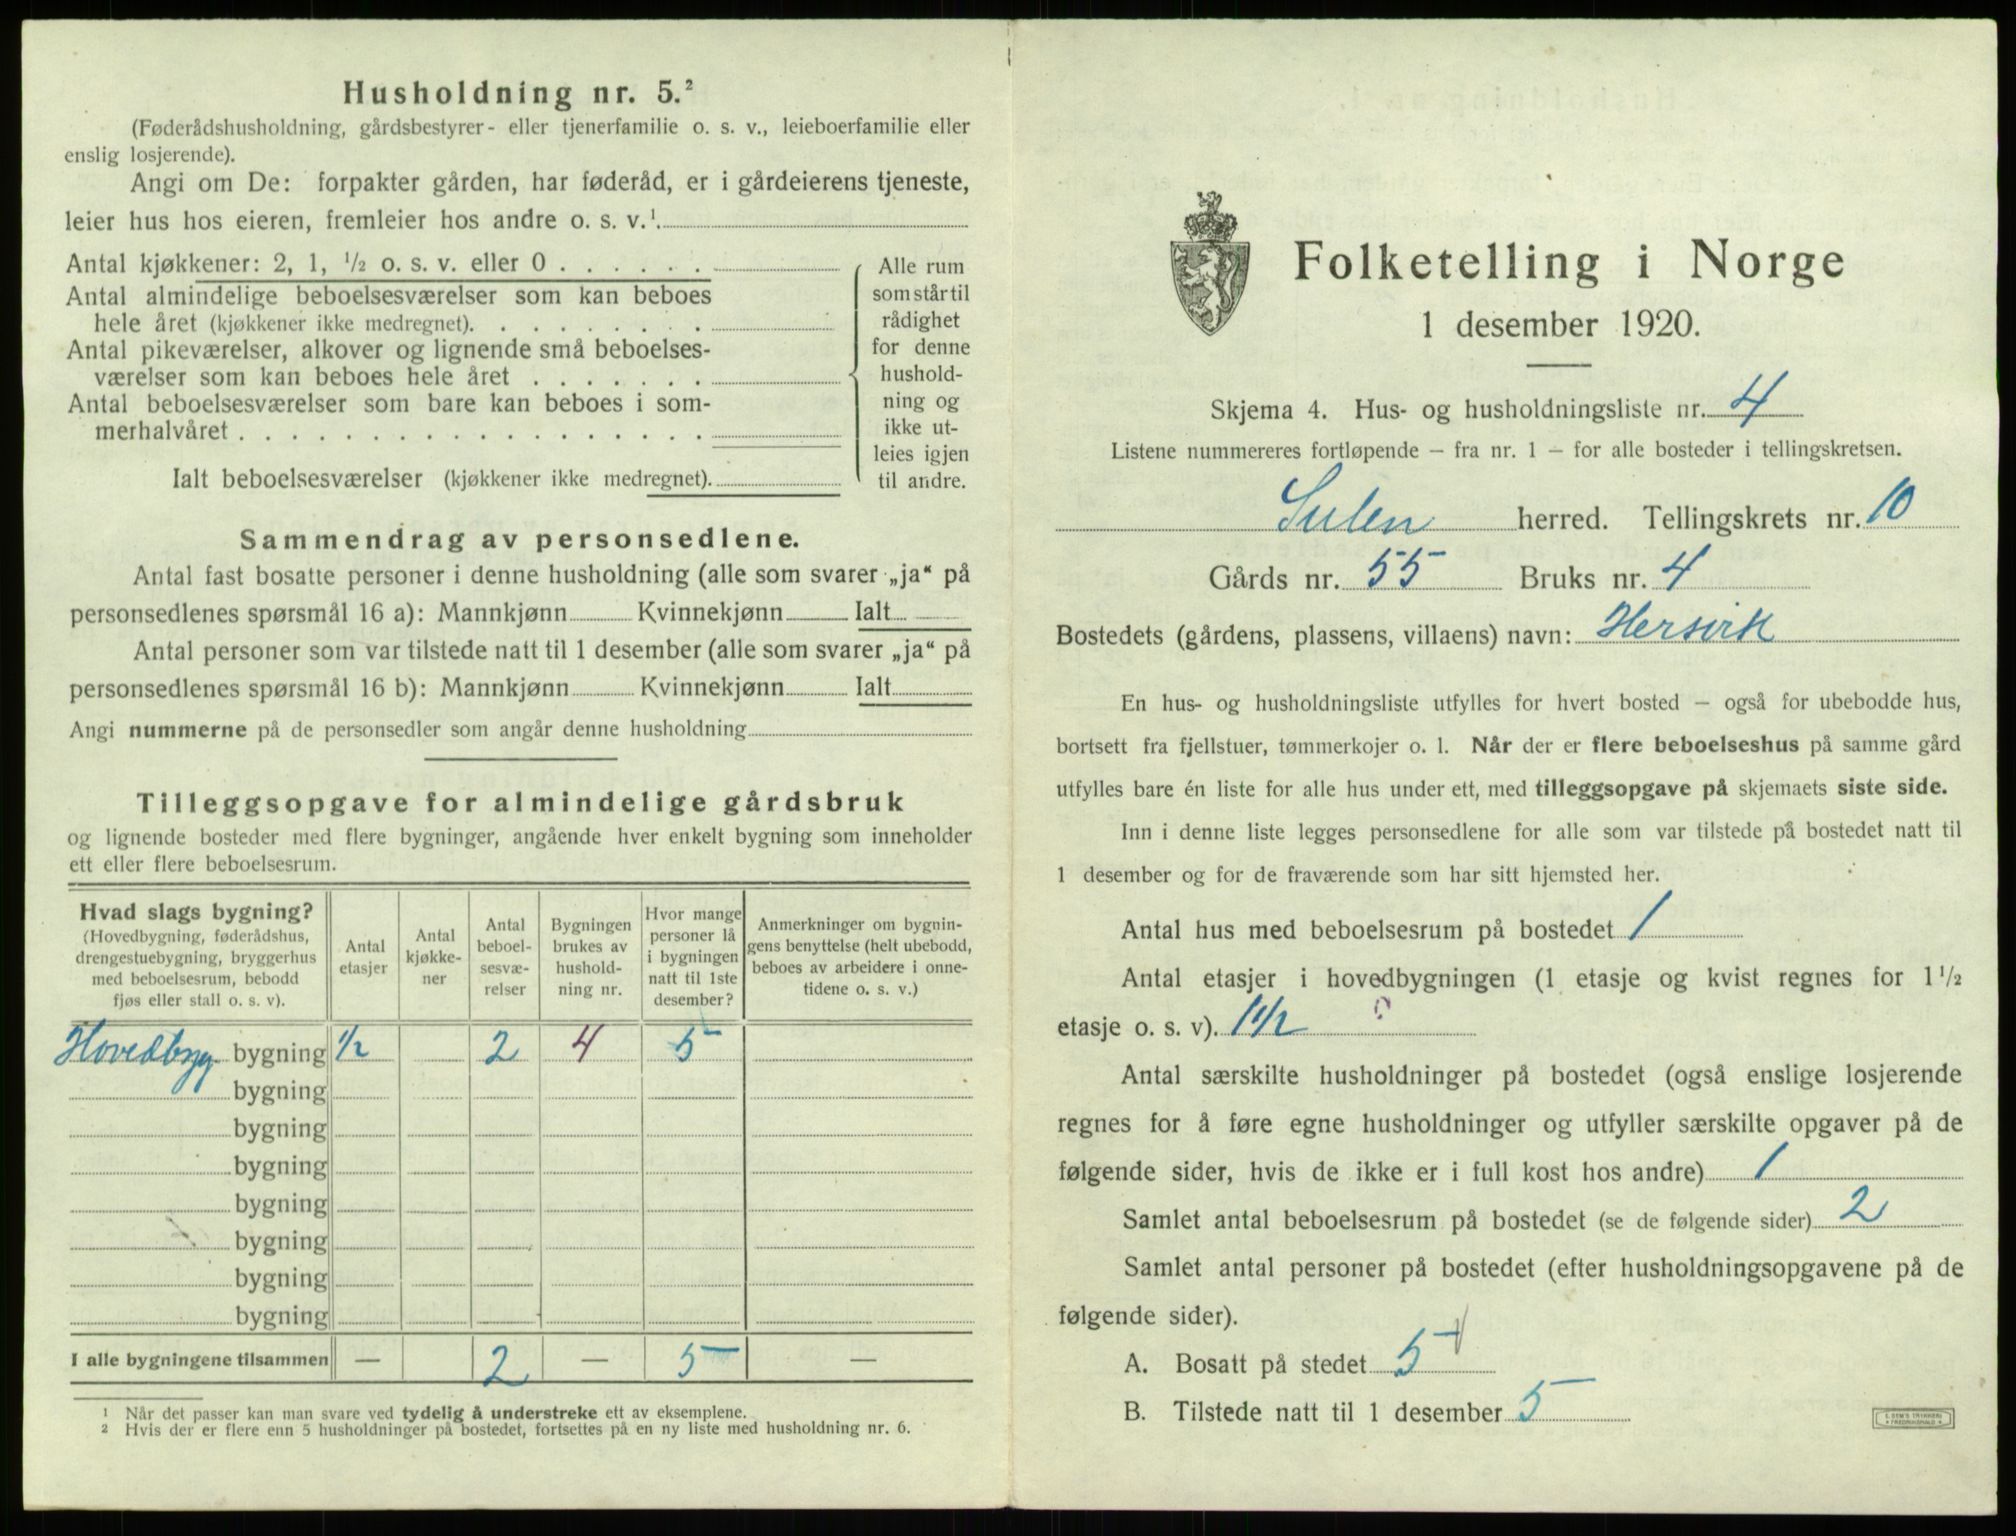 Husholdning nr. 5.²
(Føderådshusholdning, gårdsbestyrer- eller tjenerfamilie o. s. v., leieboerfamilie eller
enslig losjerende).
Angi om De: forpakter gården, har føderåd, er i gårdeierens tjeneste,
leier hus hos eieren, fremleier hos andre o. s. v.¹.
Antal kjøkkener: 2, 1, ½ o. s. v. eller 0 . . . . . .
Antal almindelige beboelsesværelser som kan beboes
hele året (kjøkkener ikke medregnet). . . . . . . . .
Antal pikeværelser, alkover og lignende små beboelses-
værelser som kan beboes hele året . . . . . . .
Antal beboelsesværelser som bare kan beboes i som-
merhalvåret . . . . . . . . . . . . . . . . . .
Ialt beboelsesværelser (kjøkkener ikke medregnet).
Alle rum
som står til
rådighet
for denne
hushold-
ning og
ikke ut-
leies igjen
til andre.
Sammendrag av personsedlene.
Antal fast bosatte personer i denne husholdning (alle som svarer „ja“ på
personsedlenes spørsmål 16 a): Mannkjønn Kvinnekjønn Ialt
Antal personer som var tilstede natt til 1 desember (alle som svarer „ja“ på
personsedlenes spørsmål 16 b): Mannkjønn Kvinnekjønn Ialt
Angi nummerne på de personsedler som angår denne husholdning
Tilleggsopgave for almindelige gårdsbruk
og lignende bosteder med flere bygninger, angående hver enkelt bygning som inneholder
ett eller flere beboelsesrum.
Hvad slags bygning?
(Hovedbygning, føderådshus,
drengestuebygning, bryggerhus
med beboelsesrum, bebodd
fjøs eller stall o. s. v).
Antal
etasjer
Antal
kjøkke-
ner
Antal
beboel-
sesvæ-
relser
Bygningen
brukes av
hushold-
ning nr.
Hvor mange
personer lå
i bygningen
natt til 1ste
desember?
Anmerkninger om bygnin-
gens benyttelse (helt ubebodd,
beboes av arbeidere i onne-
tidene o. s. v.)
Hovedbyg. bygning 1/2 2 4 5
bygning
bygning
bygning
bygning
bygning
bygning
bygning
I alle bygningene tilsammen — 2 — 5 —
¹ Når det passer kan man svare ved tydelig å understreke ett av eksemplene.
² Hvis der er flere enn 5 husholdninger på bostedet, fortsettes på en ny liste med husholdning nr. 6.
Folketelling i Norge
1 desember 1920.
Skjema 4. Hus- og husholdningsliste nr. 4
Listene nummereres fortløpende – fra nr. 1 – for alle bosteder i tellingskretsen.
Sulen herred. Tellingskrets nr. 10
Gårds nr. 55 Bruks nr. 4
Bostedets (gårdens, plassens, villaens) navn: Hersvik
En hus- og husholdningsliste utfylles for hvert bosted – også for ubebodde hus,
bortsett fra fjellstuer, tømmerkojer o. l. Når der er flere beboelseshus på samme gård
utfylles bare én liste for alle hus under ett, med tilleggsopgave på skjemaets siste side.
Inn i denne liste legges personsedlene for alle som var tilstede på bostedet natt til
1 desember og for de fraværende som har sitt hjemsted her.
Antal hus med beboelsesrum på bostedet 1
Antal etasjer i hovedbygningen (1 etasje og kvist regnes for 1 ½
etasje o. s. v). 1 1/2
Antal særskilte husholdninger på bostedet (også enslige losjerende
regnes for å føre egne husholdninger og utfyller særskilte opgaver på de
følgende sider, hvis de ikke er i full kost hos andre) 1
Samlet antal beboelsesrum på bostedet (se de følgende sider) 2
Samlet antal personer på bostedet (efter husholdningsopgavene på de
følgende sider).
A. Bosatt på stedet 5
B. Tilstede natt til 1 desember 5
E. SEM'S TRYKKERI
FREDRIKSHALD